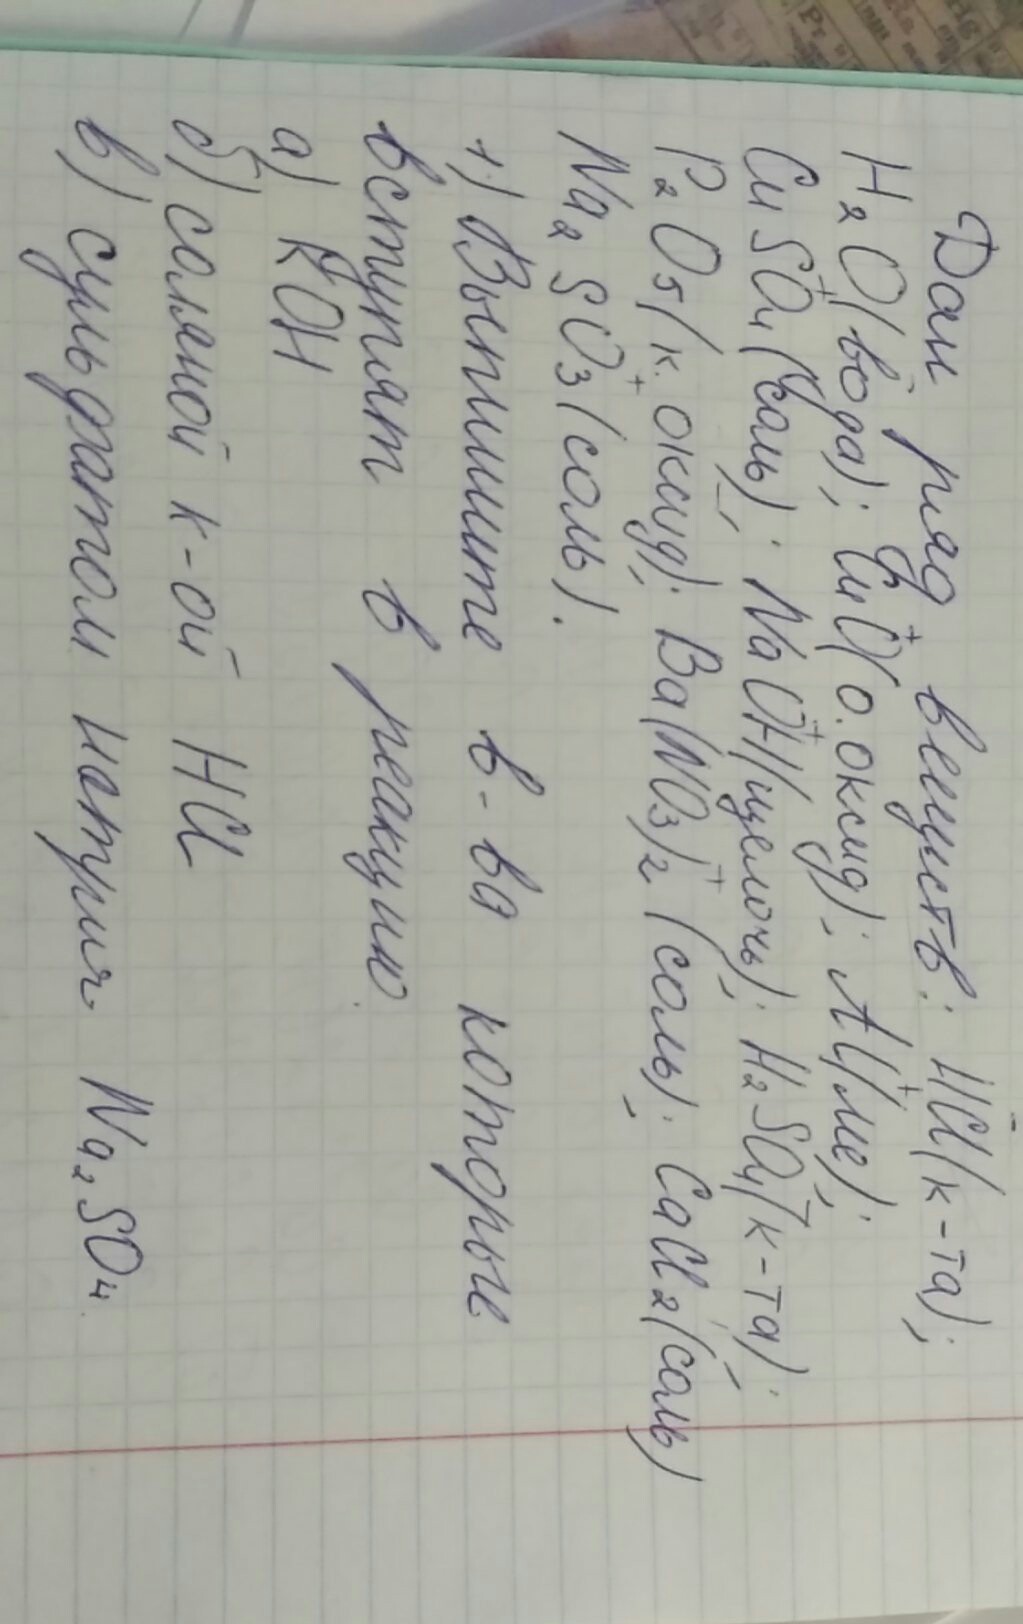 Дан ряд веществ: HCl(к-та);
H₂O(вода); CuO(о.оксид); Al(Ме);
CuSO₄(соль); NaOH(щелочь); H₂SO₄(к-та);
P₂O₅(к.оксид); Ba(NO₃)₂(соль); CaCl₂(соль)
Na₂SO₃(соль).
1) Выпишите в-ва которые
вступят в реакцию
а) KOH
б) соляной к-ой HCl
в) сульфатом натрия Na₂SO₄.